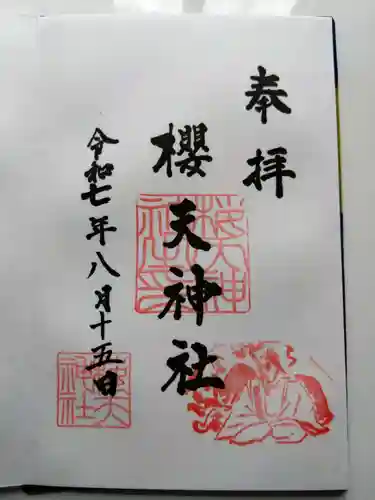 奉拝
櫻天神社
令和七年八月十五日
櫻天神
社印